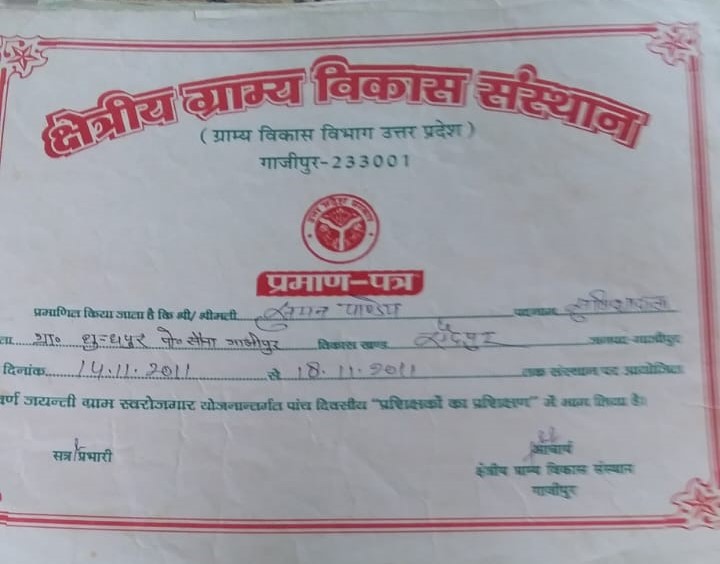 क्षेत्रीय ग्राम्य विकास संस्थान
( ग्राम्य विकास विभाग उत्तर प्रदेश )
गाजीपुर-233001
उत्तर प्रदेश सरकार
प्रमाण-पत्र
प्रमाणित किया जाता है कि श्री/ श्रीमती सुमन पाण्डेय पदनाम
ग्रा० धुन्धपुर पो० सौना गाजीपुर विकास खण्ड सैदपुर जनपद-गाजीपुर
दिनांक 14.11.2011 से 18.11.2011 तक संस्थान पर आयोजित
र्ण जयन्ती ग्राम स्वरोजगार योजनान्तर्गत पांच दिवसीय "प्रशिक्षकों का प्रशिक्षण" में भाग लिया है।
सत्र प्रभारी
आचार्य
क्षेत्रीय ग्राम्य विकास संस्थान
गाजीपुर